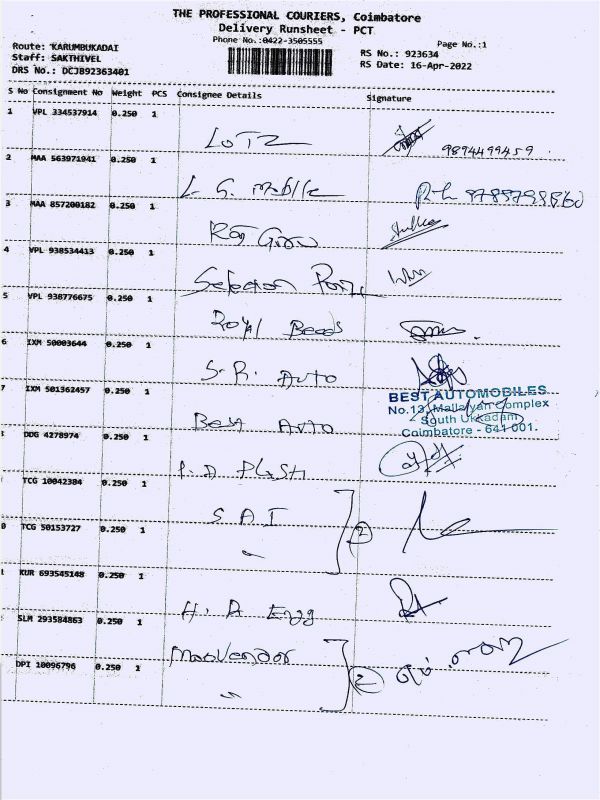 THE PROFESSIONAL COURIERS, Coimbatore
Delivery Runsheet - PCT
Phone No.:0422-3505555
Page No.:1
Route: KARUMBUKADAI
Staff: SAKTHIVEL
DRS No.: DCJ892363401
RS No.: 923634
RS Date: 16-Apr-2022
S No Consignment No Weight PCS Consignee Details Signature
1 VPL 334537914 0.250 1
LOTZ 9894499459
2 MAA 563971941 0.250 1
L G. Mobile
3 MAA 857200182 0.250 1
4 VPL 938534413 0.250 1
Selection Point
5 VPL 938776675 0.250 1
Royal Beads
6 IXM 50003644 0.250 1
S.R. Auto
7 IXM 501362457 0.250 1
BEST AUTOMOBILES
No.13, Mallaiyan Complex
South Ukkadam
Coimbatore - 641 001.
Best Auto
DDG 4278974 0.250 1
TCG 10042384 0.250 1
SAI
2
0 TCG 50153727 0.250 1
"
KUR 693545148 0.250 1
H. A Engg
SLM 293584863 0.250 1
2
DPI 10096796 0.250 1
"